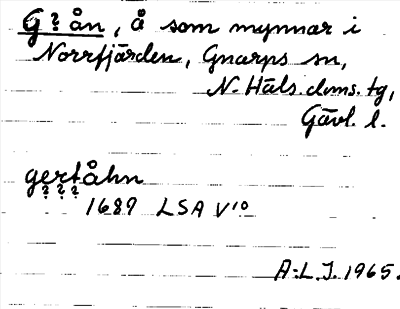 G ? ån, å som mynnar i
Norrfjärden, Gnarps sn,
N. Häls. dms. tg,
Gävl. l.
gertåhn
? ? ?
1689 LSA V10
A.L.J. 1965.